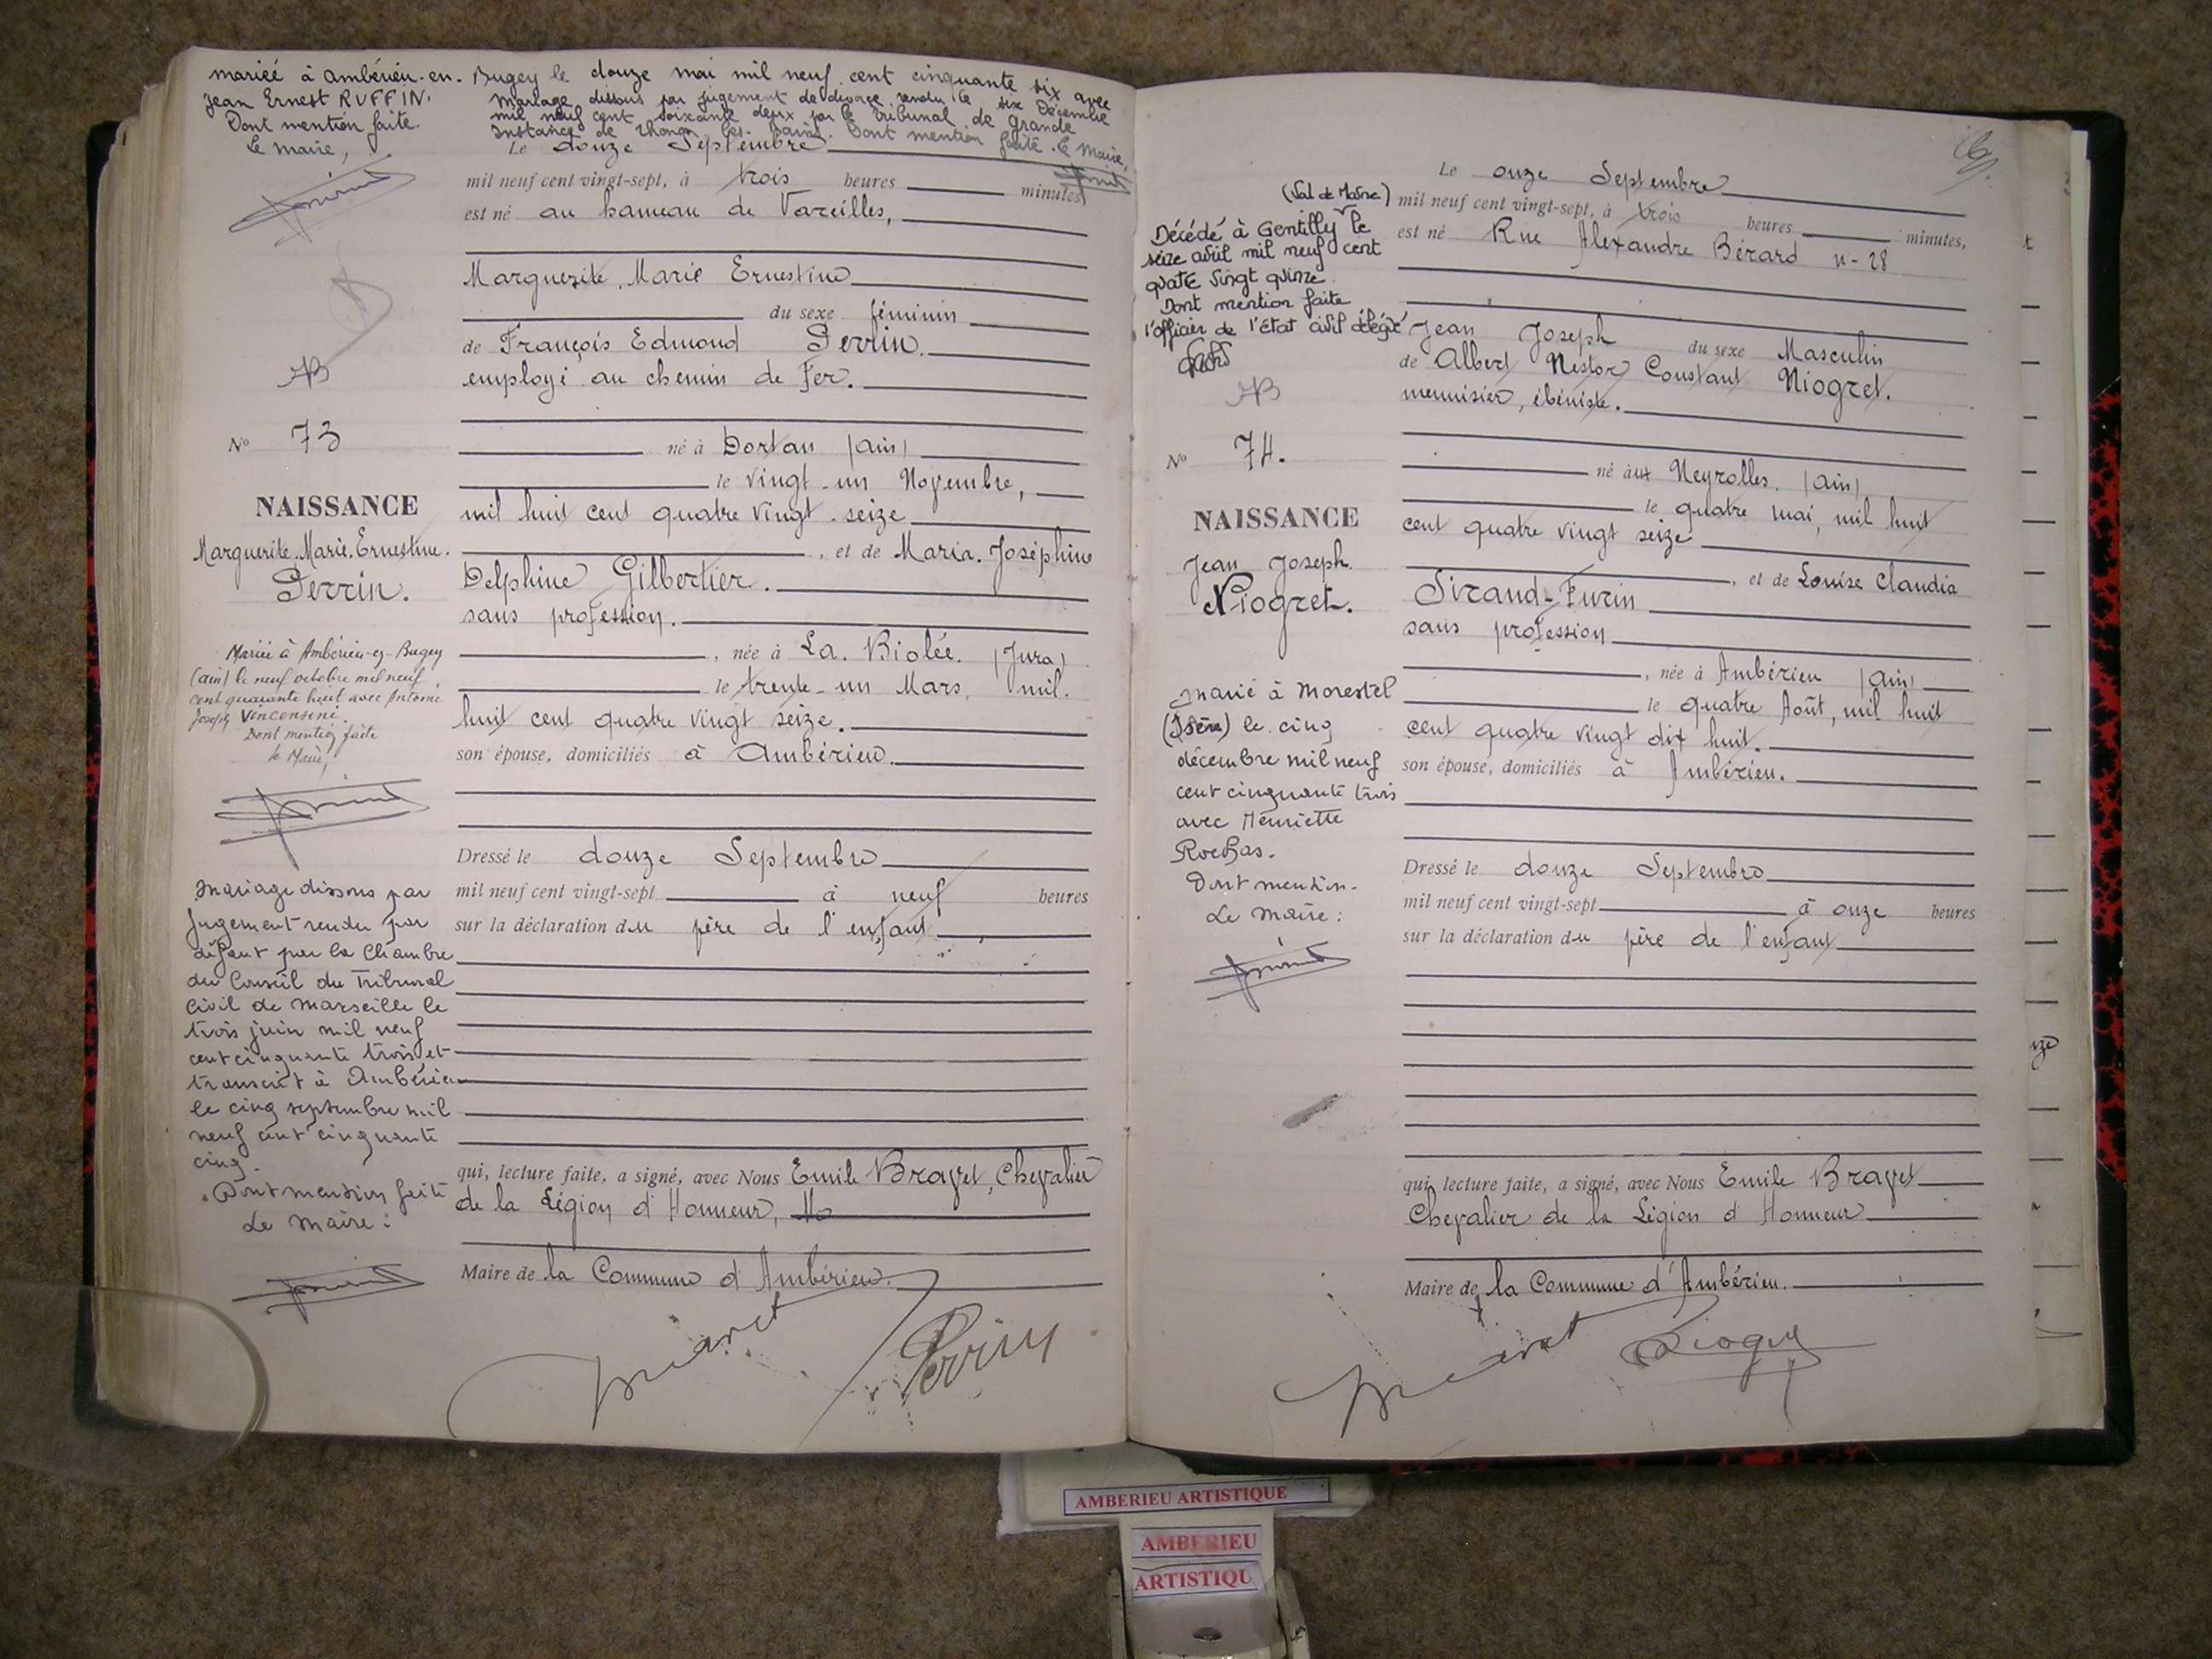 mariée à ambérieu-en-Bugey le douze mai mil neuf cent cinquante six avec
Jean Ernest RUFFIN.
Dont mention faite.
Le maire,
Mariage dissous par jugement de divorce rendu le six Décembre
mil neuf cent soixante deux par le Tribunal de grande
instance de Thonon-les-Bains. Dont mention faite. Le Maire,
Le douze Septembre
mil neuf cent vingt-sept, à trois heures minutes
est né au hameau de Vareilles,
Marguerite, Marie Ernestine
du sexe féminin
de François Edmond Perrin.
employé au chemin de Fer.
né à Dortan (ain)
le vingt-un Novembre,
mil huit cent quatre vingt-seize
, et de Maria. Joséphine
Delphine Gilbertier.
sans profession.
, née à La. Biolée. (Jura)
le trente-un Mars, mil.
huit cent quatre vingt seize.
son épouse, domiciliés à Ambérieu.
Dressé le douze Septembre
mil neuf cent vingt-sept à neuf heures
sur la déclaration du père de l'enfant
qui, lecture faite, a signé, avec Nous Emile Bravet, Chevalier
de la Légion d'Honneur,
Maire de la Commune d'Ambérieu.
Perrin
AB
No 73
NAISSANCE
Marguerite. Marie. Ernestine.
Perrin.
Mariée à Ambérieu-en-Bugey
(ain) le neuf octobre mil neuf
cent quarante huit avec Antoine
Joseph Vincensini.
Dont mention faite
le Maire,
Mariage dissous par
jugement rendu par
défaut par la Chambre
du Conseil du Tribunal
Civil de Marseille le
trois juin mil neuf
cent cinquante trois et
transcrit à Ambérieu
le cinq septembre mil
neuf cent cinquante
cinq.
Dont mention faite
Le Maire :
Le onze Septembre
mil neuf cent vingt-sept, à trois heures minutes,
est né Rue Alexandre Bérard n-28
Jean Joseph du sexe Masculin
de Albert Nestor Constant Niogret.
menuisier, ébéniste.
né aux Neyrolles. (ain)
le quatre mai, mil huit
cent quatre vingt seize
, et de Louise Claudia
Sirand-Furin
sans profession
, née à Ambérieu (ain)
le quatre Août, mil huit
cent quatre vingt dix huit.
son épouse, domiciliés à Ambérieu.
Dressé le douze Septembre
mil neuf cent vingt-sept à onze heures
sur la déclaration du père de l'enfant
qui, lecture faite, a signé, avec Nous Emile Bravet
Chevalier de la Légion d'Honneur
Maire de la Commune d'Ambérieu.
(Val de Marne)
Décédé à Gentilly le
seize avril mil neuf cent
quatre vingt quinze.
Dont mention faite
l'officier de l'état civil délégué
AB
No 74.
NAISSANCE
Jean Joseph.
Niogret.
Marié à Morestel
(Isère) le cinq
décembre mil neuf
cent cinquante trois
avec Henriette
Rochas.
Dont mention.
Le Maire :
AMBERIEU ARTISTIQUE
AMBERIEU
ARTISTIQU